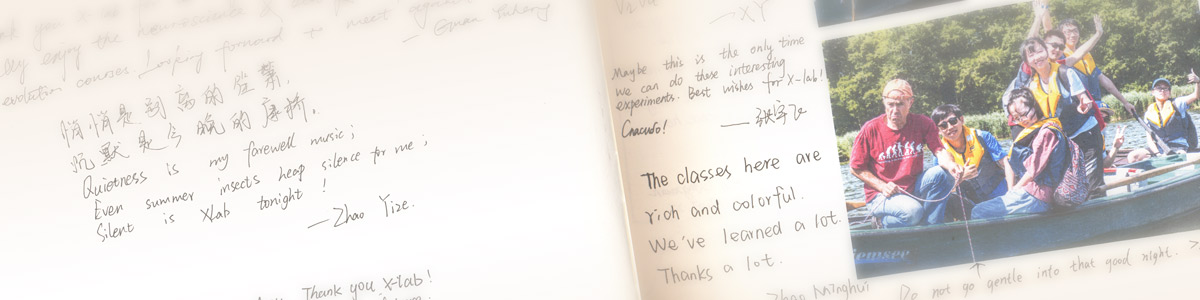 enjoy the neuroscience &
evolution courses. Looking forward to meet
悄悄是别离的笙箫,
沉默是今晚的康桥.
Quietness is my farewell music;
Even summer insects heap silence for me;
Silent is Xlab tonight!
—Zhao Yize.
Thank you X-lab!
—XY
Maybe this is the only time
we can do these interesting
experiments. Best wishes for X-lab!
Спасибо!
— 张宇飞
The classes here are
rich and colorful.
We've learned a lot.
Thanks a lot.
Zhao Minghui
Do not go gentle into that good night.